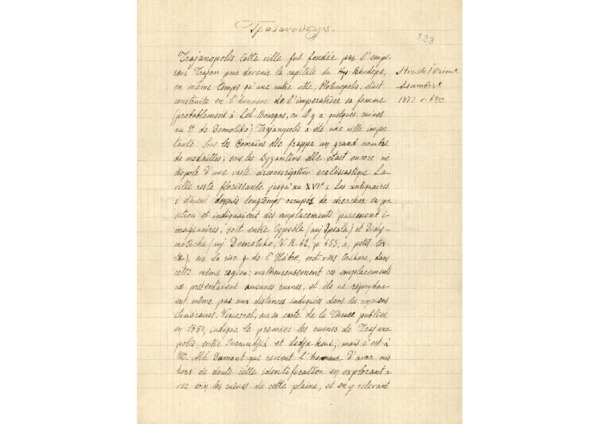 Τραϊανούπολις.
228
Trajanopolis. Cette ville fut fondée par l'empe
reur Trajan pour devenir la capitale du Rhodope,
en même temps qu'une autre ville, Plotinopolis, était
construite en l'honneur de l'impératrice sa femme
(probablement à où il y a quelques ruines
au de Demotiko). Trajanopolis a été une ville impor
tante. Sous les Romains elle frappa un grand nombre
de medailles; sous les Byzantins elle était encore mé
tropole d'une vaste circonscription ecclésiastique. La
ville resta florissante jusqu'au XVIe s. Les antiquaires
s'étaient depuis longtemps occupés de chercher sa po
sition et indiquaient des emplacements purement i-
maginaires, soit entre Cypsella (auj Ipsala) et Didy-
moteicho (auj Demotiko, p. 653, a, petit tex
te), sur la rive g. de l'Hebre, soit vers dans
cette même region: malheureusement ces emplacements
ne présentaient aucunes ruines, et ils ne réponda-
ient même pas aux distances indiquées dans les
Viquesnel, sur sa carte de la Thrace publiée
en indiqua le premier les ruines de Trajano
polis, entre et mais c'est à
M. Alb. Dumont que revient l'honneur d'avoir mis
hors de doute cette identification en explorant a
vec soin les ruines de cette plaine, et en y relevant